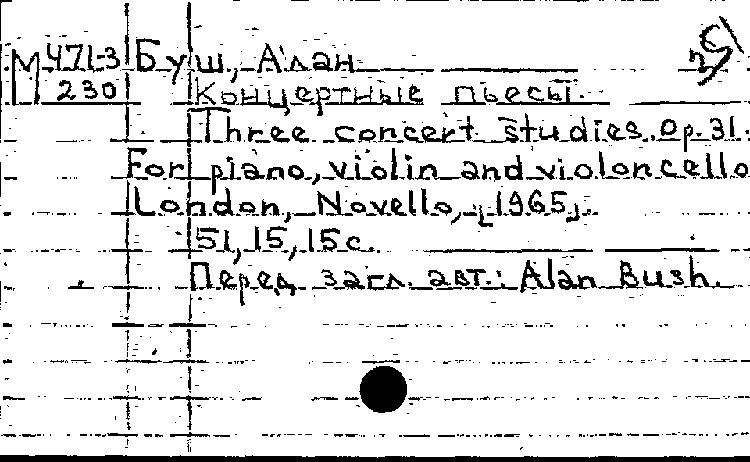 М 471-3 Буш, Алан
230 Концертные пьесы.
Three concert studies. Op. 31.
For piano, violin and violoncello
London, Novello, [1965].
51, 15, 15 с.
Перед загл. авт.: Alan Bush.